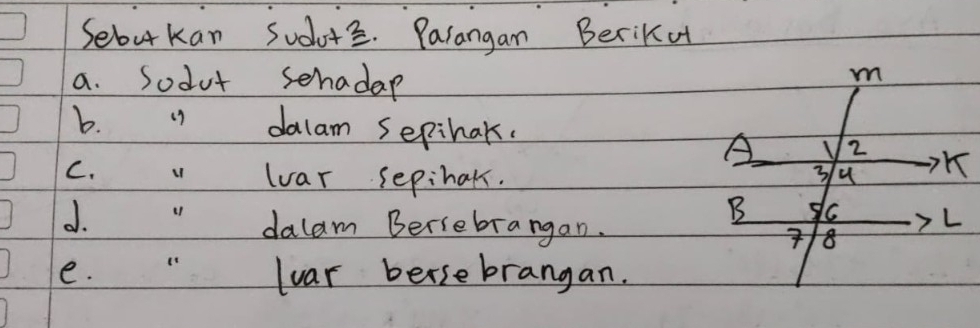 Sebutkan Sudut2. Pasangan Berikut
a. Sudut Sehadap
b. " dalam Sepihak.
c. " luar sepihak.
d. " dalam Bersebrangan.
e. " luar bersebrangan.
m
A 1 2 K
3 4
B 5 6 L
7 8